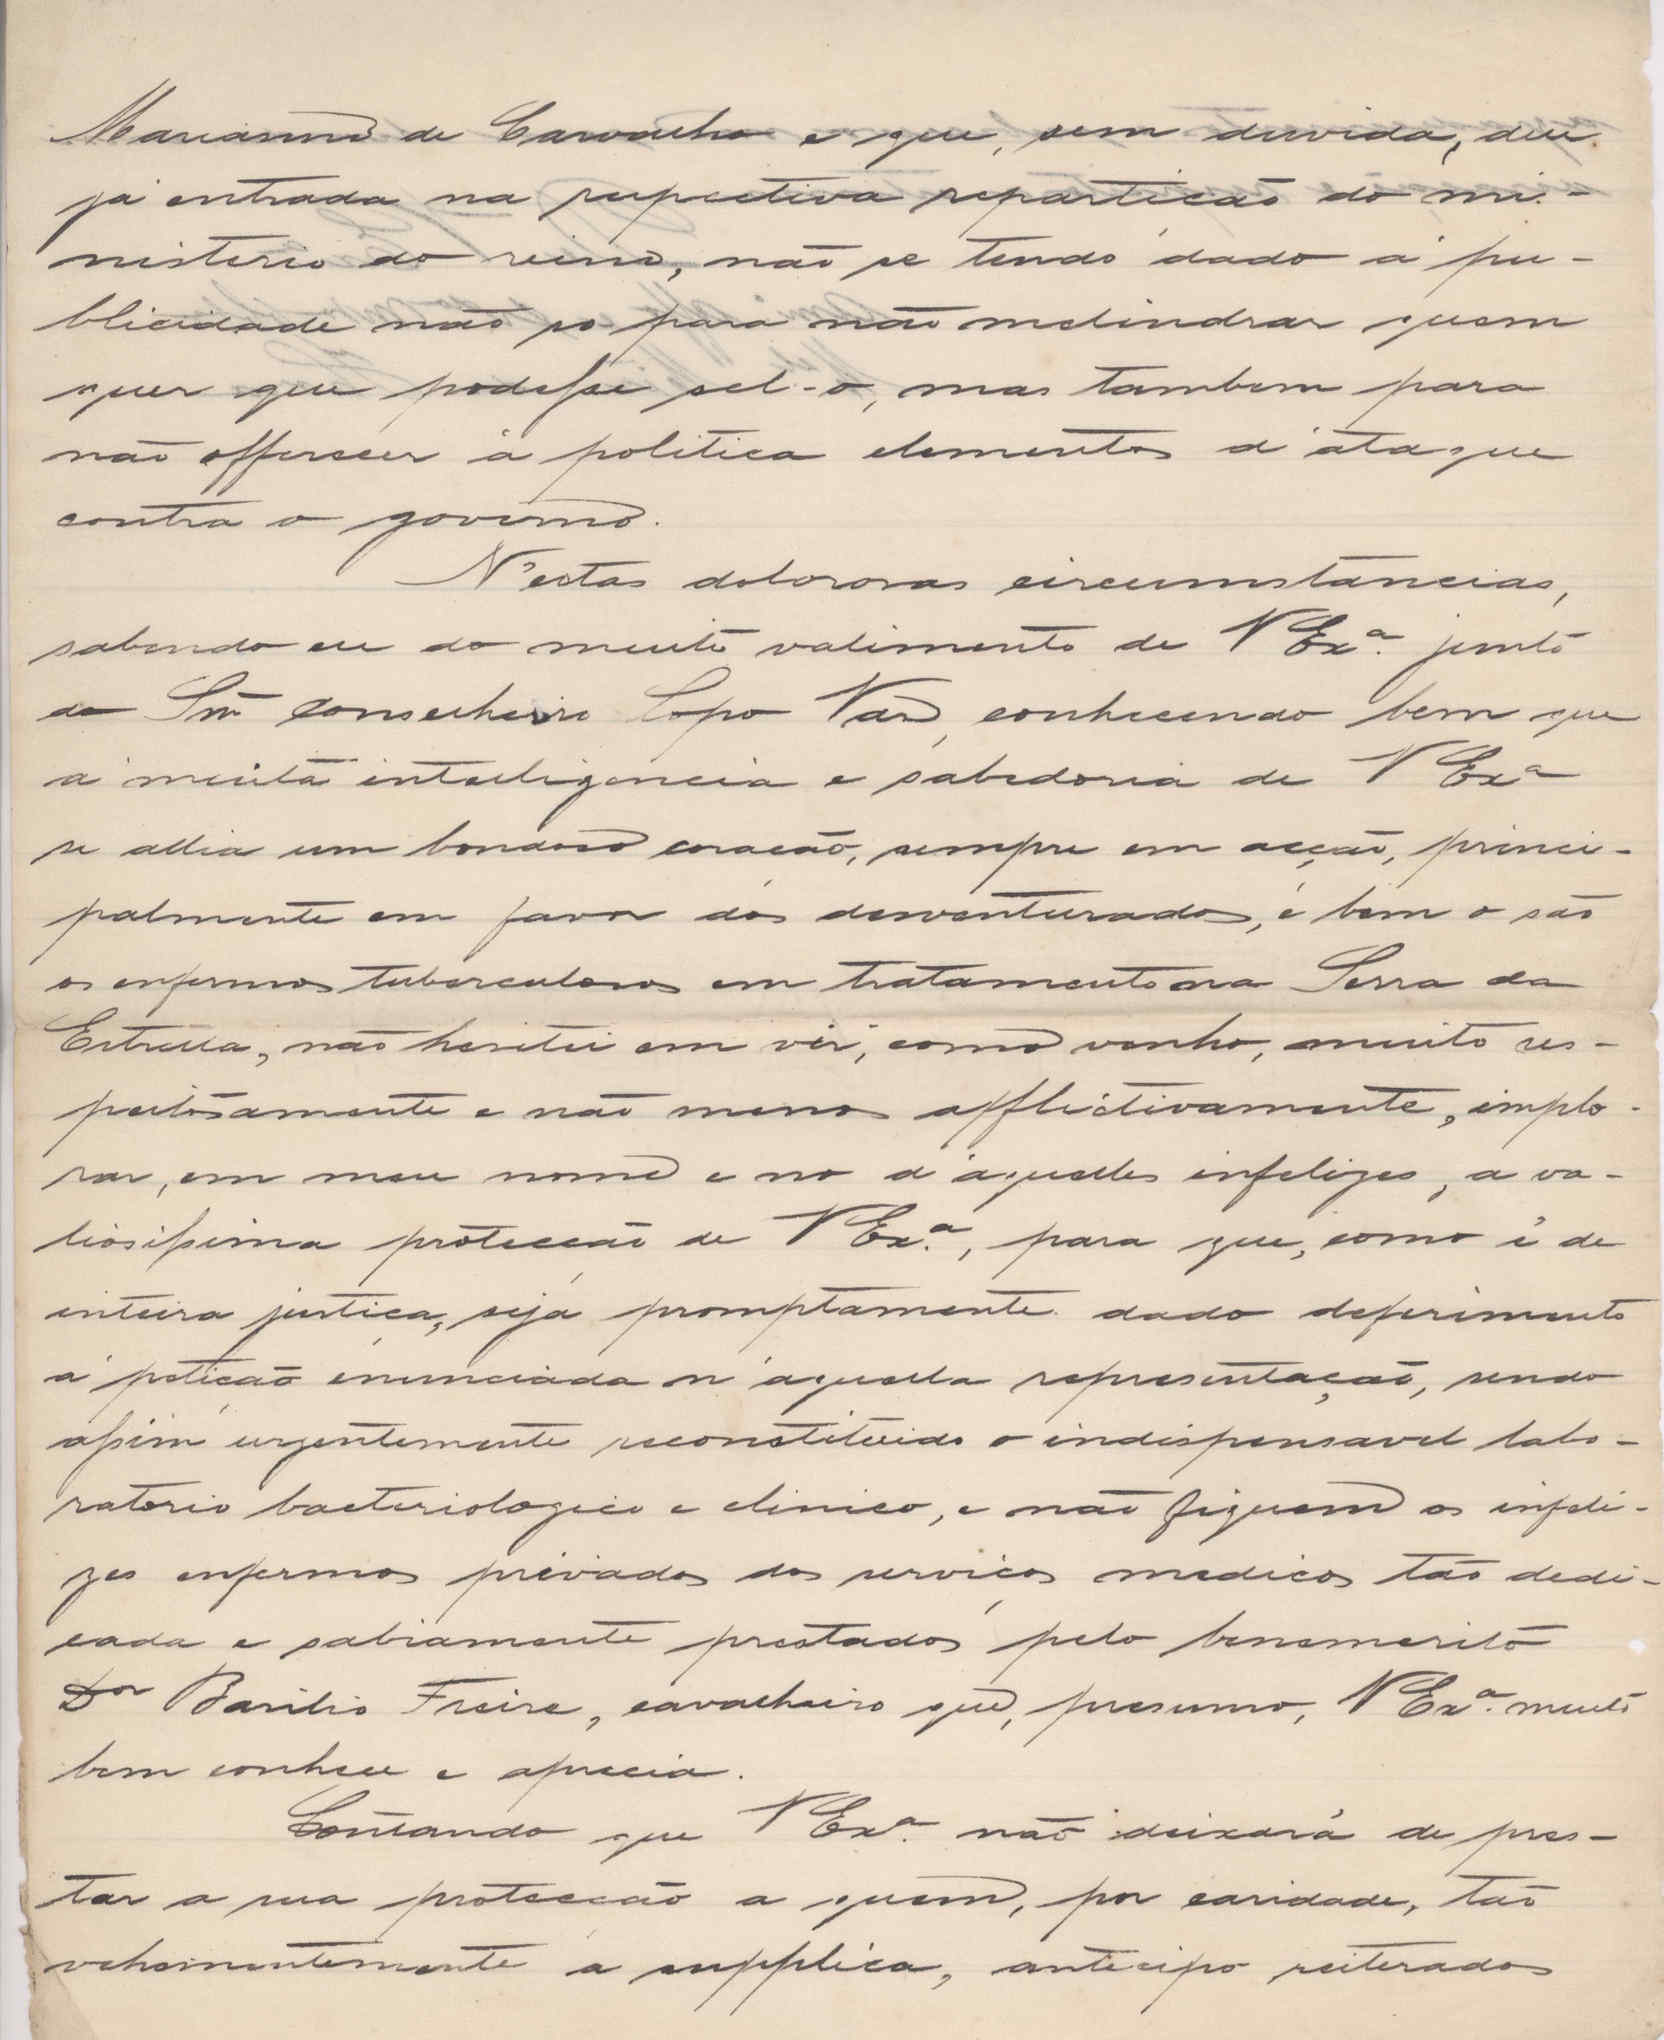 Marianno de Carvalho e que, sem duvida, deu
já entrada na respectiva repartição do mi-
nisterio do reino, não se tendo dado á pu-
blicidade não só para não melindrar quem
quer que podesse sel-o, mas tambem para
não offerecer á politica elementos d'ataque
contra o governo.
N'estas dolorosas circumstancias,
sabendo eu do muito valimento de V Exª. junto
do Snr conselheiro Lopo Vaz, conhecendo bem que
á muita intelligencia e sabedoria de V Exª
se allia um bondoso coração, sempre em acção, princi-
palmente em favor dos desventurados, e bem o são
os enfermos tuberculosos em tratamento na Serra da
Estrella, não hesitei em vir, como venho, muito res-
peitosamente e não menos afflictivamente, implo-
rar, em meu nome e no d'aquelles infelizes, a va-
liosissima protecção de V Exª., para que, como é de
inteira justiça, seja promptamente dado deferimento
á petição enunciada n'aquella representação, sendo
assim urgentemente reconstituido o indispensavel labo-
ratorio bacteriologico e clinico, e não fiquem os infeli-
zes enfermos privados dos serviços medicos tão dedi-
cada e sabiamente prestados pelo benemerito
Dor Basilio Freire, cavalheiro que, presumo, V Exª. muito
bem conhece e aprecia.
Contando que V Exª. não deixará de pres-
tar a sua protecção a quem, por caridade, tão
vehementemente a supplica, antecipo reiterados